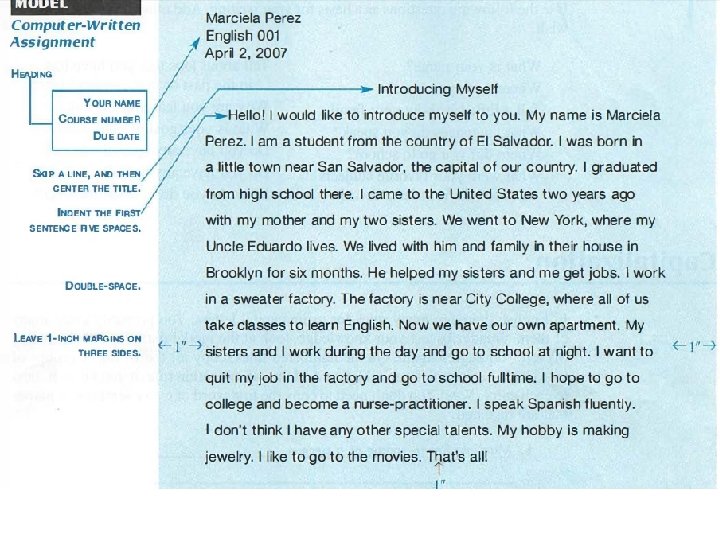 MODEL
Computer-Written
Assignment
HEADING
YOUR NAME
COURSE NUMBER
DUE DATE
SKIP A LINE, AND THEN
CENTER THE TITLE.
INDENT THE FIRST
SENTENCE FIVE SPACES.
DOUBLE-SPACE.
LEAVE 1-INCH MARGINS ON
THREE SIDES.
Marciela Perez
English 001
April 2, 2007
Introducing Myself
Hello! I would like to introduce myself to you. My name is Marciela
Perez. I am a student from the country of El Salvador. I was born in
a little town near San Salvador, the capital of our country. I graduated
from high school there. I came to the United States two years ago
with my mother and my two sisters. We went to New York, where my
Uncle Eduardo lives. We lived with him and family in their house in
Brooklyn for six months. He helped my sisters and me get jobs. I work
in a sweater factory. The factory is near City College, where all of us
take classes to learn English. Now we have our own apartment. My
←1"→ sisters and I work during the day and go to school at night. I want to ←1"→
quit my job in the factory and go to school fulltime. I hope to go to
college and become a nurse-practitioner. I speak Spanish fluently.
I don't think I have any other special talents. My hobby is making
jewelry. I like to go to the movies. That's all!
1"